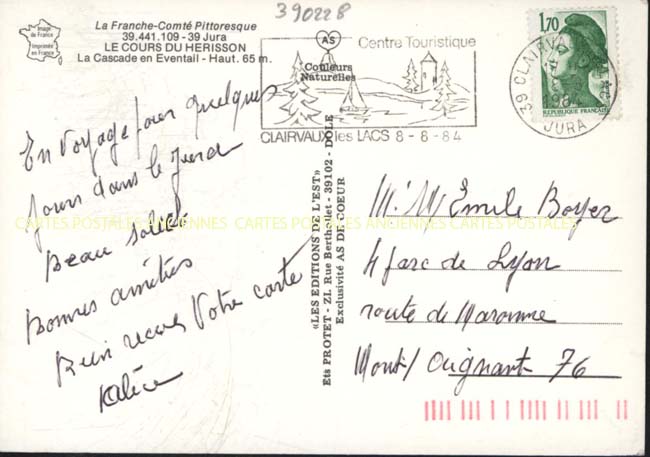 390228
Image de France
Imprimée en France
La Franche-Comté Pittoresque
39.441.109 - 39 Jura
LE COURS DU HERISSON
La Cascade en Eventail - Haut. 65 m.
AS
Centre Touristique
Couleurs
Naturelles
CLAIRVAUX les LACS 8-8-84
1,70
REPUBLIQUE FRANÇAISE
39 CLAIRV
JURA
En voyage pour quelques
jours dans le Jura
Beau soleil
Bonnes amitiés
Bien reçu votre carte
«LES EDITIONS DE L'EST»
Ets PROTET - ZI. Rue Berthollet - 39102 - DOLE
Exclusivité AS DE COEUR
Mr M Emile Boyer
4 parc de Lyon
route de Maromme
Mont/ Aignant 76
CARTES POSTALES ANCIENNES CARTES POSTALES ANCIENNES CARTES POSTALES